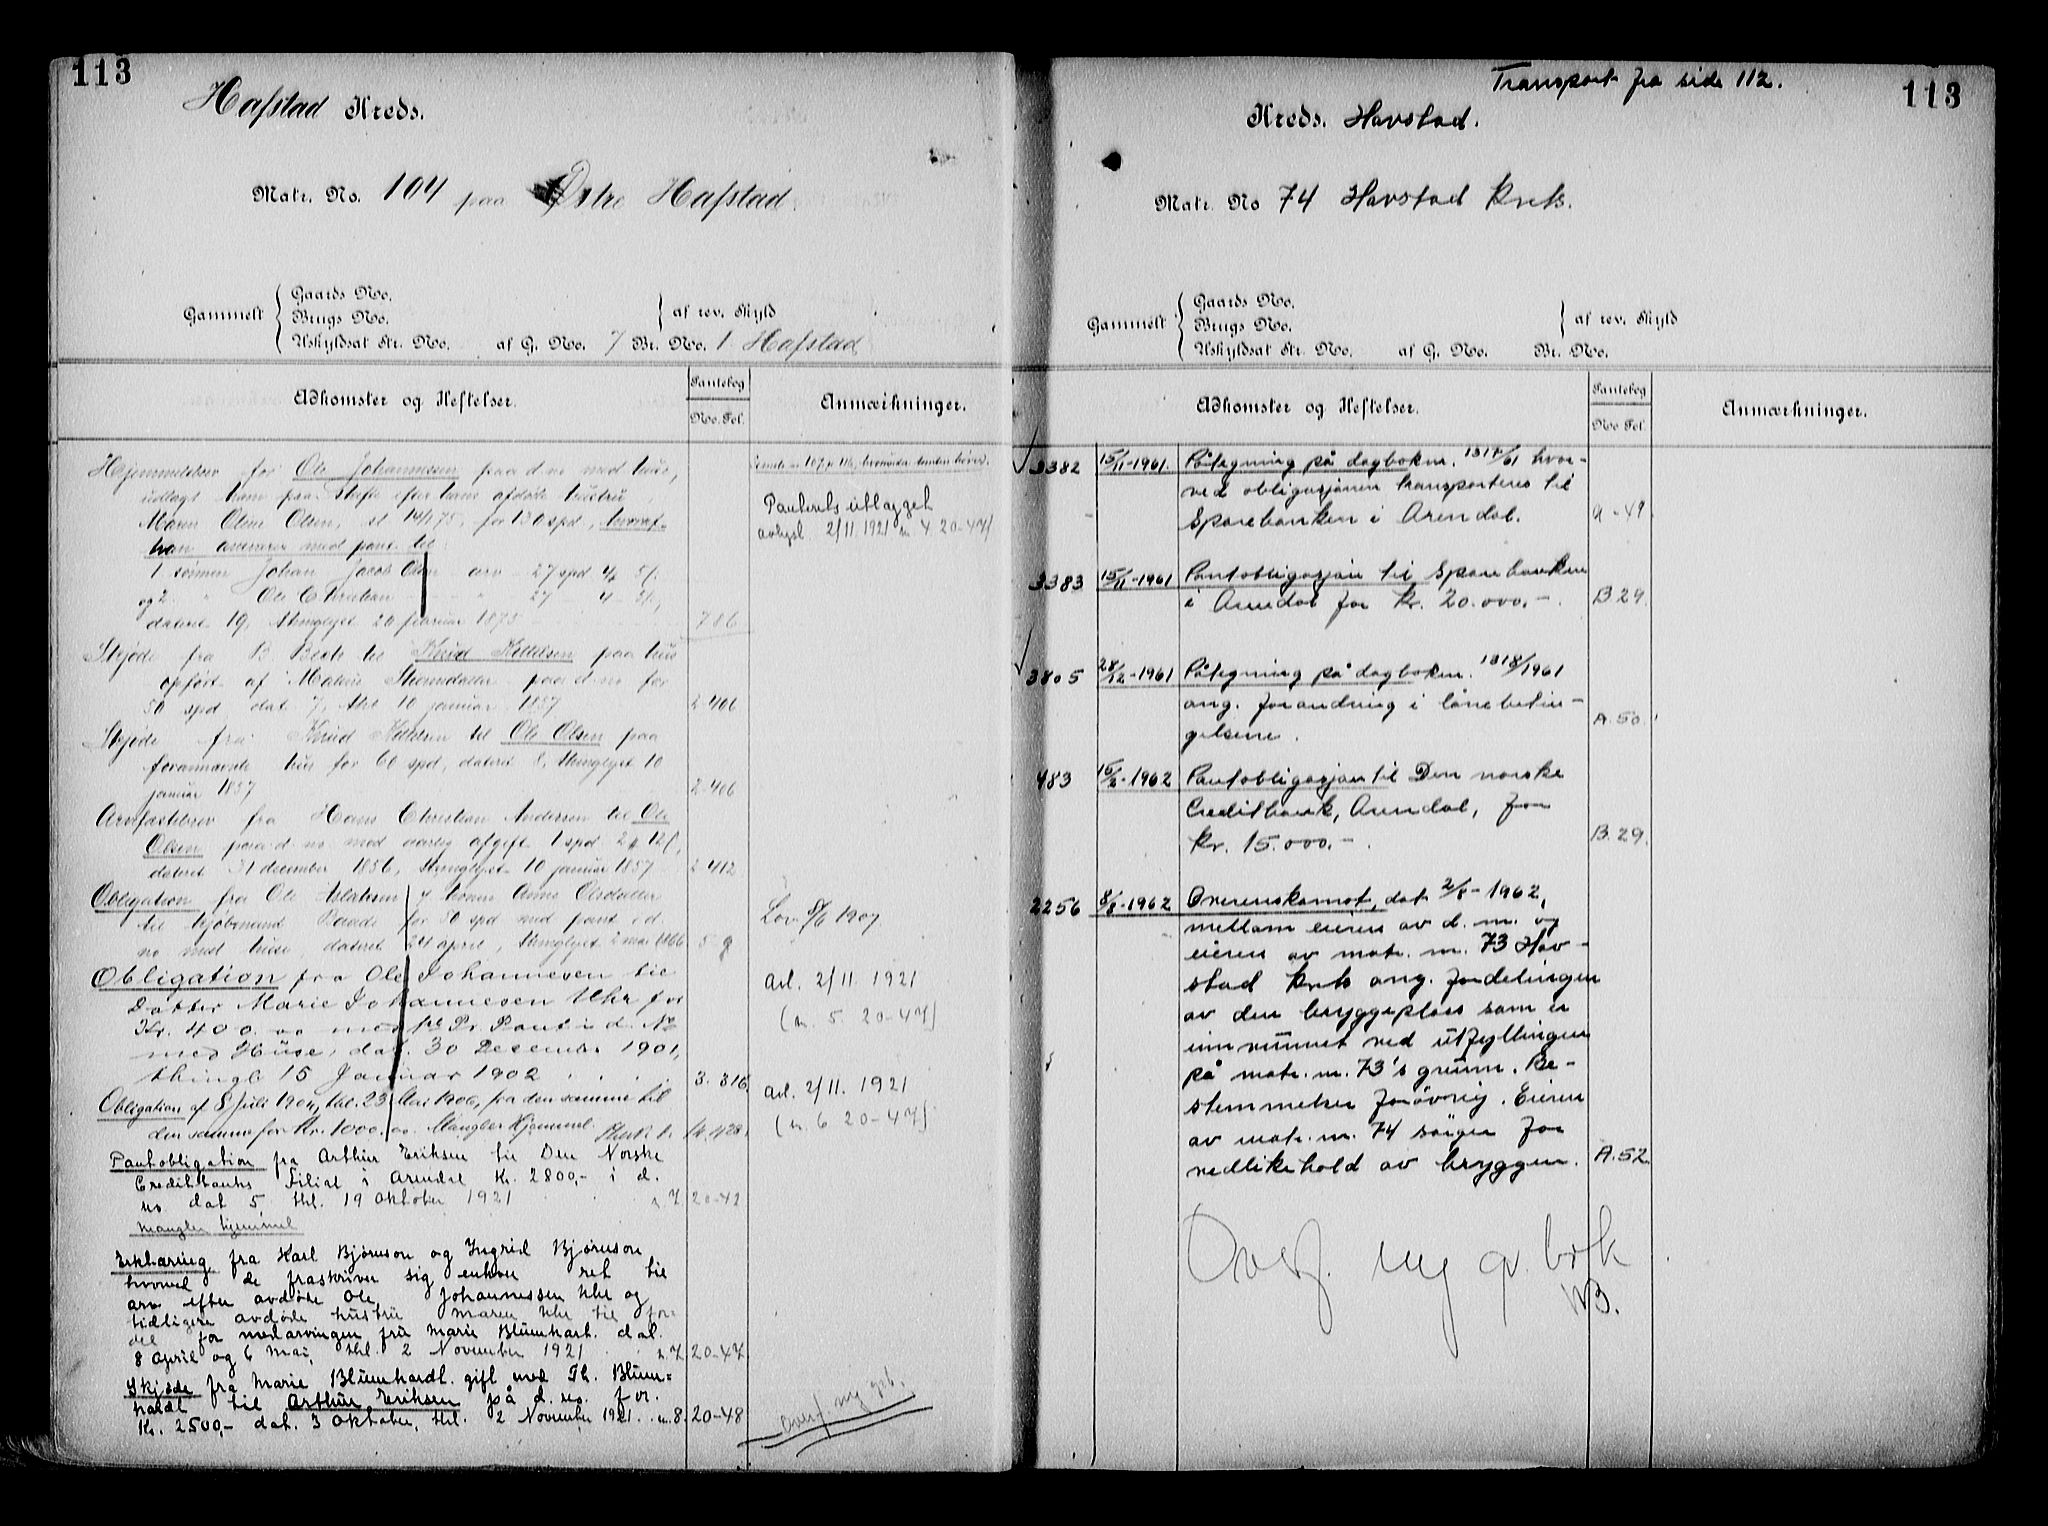 113
Hafstad Kreds.
Matr. No. 104 paa Østre Hafstad.
Gammelt
Gaards No.
Brugs No.
Uskyldsat Str. No. af G. No. 7 Br. No. 1 Hafstad
af rev. Skyld
Adkomster og Heftelser.
Pantebog
No. Fol.
Anmærkninger.
Hjemmelsbrev for Ole Johannesen paa d. no med hus,
udlagt ham fra Skifte efter hans afdøde hustru
Maren Oline Olsen, sl 14/1 75, for 130 spd, hvoraf
han med pant til
1. sønnen Johan Jacob Olsen arv 27 spd 4 5/.
og 2. " Ole Christian " 27 4
dateret 19, thinglyst 20 februar 1875 786
Skjøde fra B. til Knud Kittelsen paa hus
opført af paa d. no for
50 spd dat 7, thl 10 januar 1857 2 406
Skjøde fra Knud Kittelsen til Ole Olsen paa
forannævnte hus for 60 spd, dateret 8, thinglyst 10
januar 1857 2 406
Arvfæstebrev fra Hans Christian Andersen til Ole
Olsen paa d. no med aarlig afgift 1 spd 2
dateret 31 december 1856, thinglyst 10 januar 1857 2 412
Obligation fra Ole Aslaksen
til Kjøbmand for 50 spd med pant i d.
no med huse, dateret 24 april, thinglyst 2 mai 1866 5 9
Obligation fra Ole Johannesen til
Datter Marie Johannesen Uhr for
Kr. 400.00 med 1ste Pr. Pant i d. No
med Huse, dat. 30 December 1901,
thingl 15 Januar 1902 3. 316
Obligation af 8 Juli 1904, thl. 23 Mai 1906, fra den samme til
den samme for Kr. 1000.00. Mangler Hjemmel. 4. 428.
Pantobligation fra Arthur Eriksen til Den Norske
Creditbanks Filial i Arendal Kr. 2800,- i d.
no dat 5, thl. 19 Oktober 1921 n 7 20-42
mangler hjemmel
Erklæring fra Karl Bjørnson og Ingrid Bjørnson
hvorved de fraskriver sig enhver ret til
arv efter avdøde Ole Johannessen Uhr og
tidligere avdøde hustru Maren Uhr til for-
del for medarvingen fru Marie Blumhart. dat.
8 April og 6 Mai, thl. 2 November 1921 n 7 20-47
Skjøde fra Marie Blumhardt. gift med Th. Blum=
hardt til Arthur Eriksen på d. no. for
Kr. 2500,- dat. 3 Oktober, thl. 2 November 1921. n 8. 20-48
Panterets utlægget
avlyst 2/11 1921 n 4 20-47)
Lov 8/6 1907
avl. 2/11 1921
(n. 5 20-47)
avl. 2/11. 1921
(n. 6 20-47)
overf. ny grb.
Transport fra side 112.
113
Kreds. Havstad.
Matr. No 74 Havstad Krets.
Gammelt
Gaards No.
Brugs No.
Uskyldsat Str. No. af G. No. Br. No.
af rev. Skyld
Adkomster og Heftelser.
Pantebog
No Fol.
Anmærkninger.
3382 15/11-1961. Påtegning på dagboknr. 1317/61 hvor-
ved obligasjonen transporteres til
Sparebanken i Arendal. A-49
3383 15/11-1961 Pantobligasjon til Sparebanken
i Arendal for kr. 20.000.- B 29.
3805 28/12-1961 Påtegning på dagboknr. 1318/1961
ang. forandring i lånebetin-
gelsene. A.50.
483 15/2-1962 Pantobligasjon til Den norske
Creditbank, Arendal, for
kr. 15.000.- B.29.
2256 8/8-1962 Overenskomst, dat 2/8-1962,
mellom eieren av d. nr. og
eieren av matr. nr. 73 Hav-
stad krets ang. fordelingen
av den bryggeplass som er
innvunnet ved utfyllingen
på matr. nr. 73's grunn. Be-
stemmelser forøvrig. Eieren
av matr. nr. 74 sørger for
vedlikehold av bryggen. A.52.
Overf. ny gr. bok